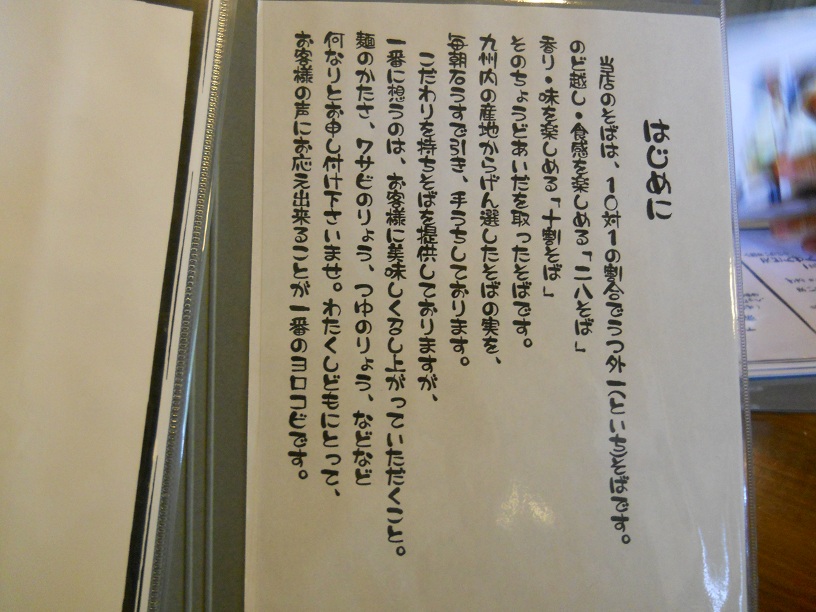 はじめに
当店のそばは、10対1の割合でうつ外一(といち)そばです。
のど越し・食感を楽しめる「二八そば」
香り・味を楽しめる「十割そば」
そのちょうどあいだを取ったそばです。
九州内の産地からげん選したそばの実を、
毎朝石うすで引き、手うちしております。
こだわりを持ちそばを提供しておりますが、
一番に想うのは、お客様に美味しく召し上がっていただくこと。
麺のかたさ、ワサビのりょう、つゆのりょう、などなど
何なりとお申し付け下さいませ。わたくしどもにとって、
お客様の声にお応え出来ることが一番のヨロコビです。